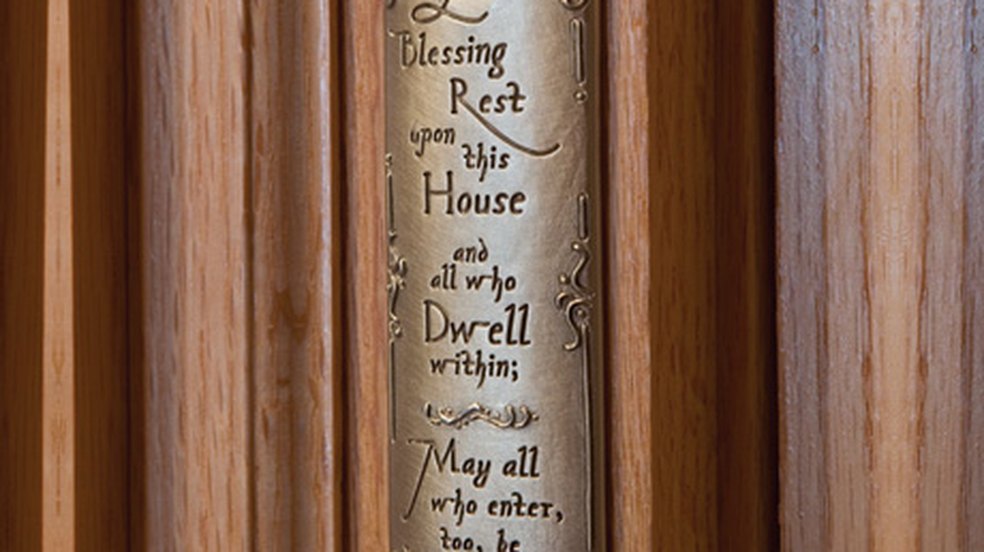 Blessing
Rest
upon
this
House
and
all who
Dwell
within;
May all
who enter,
too, be